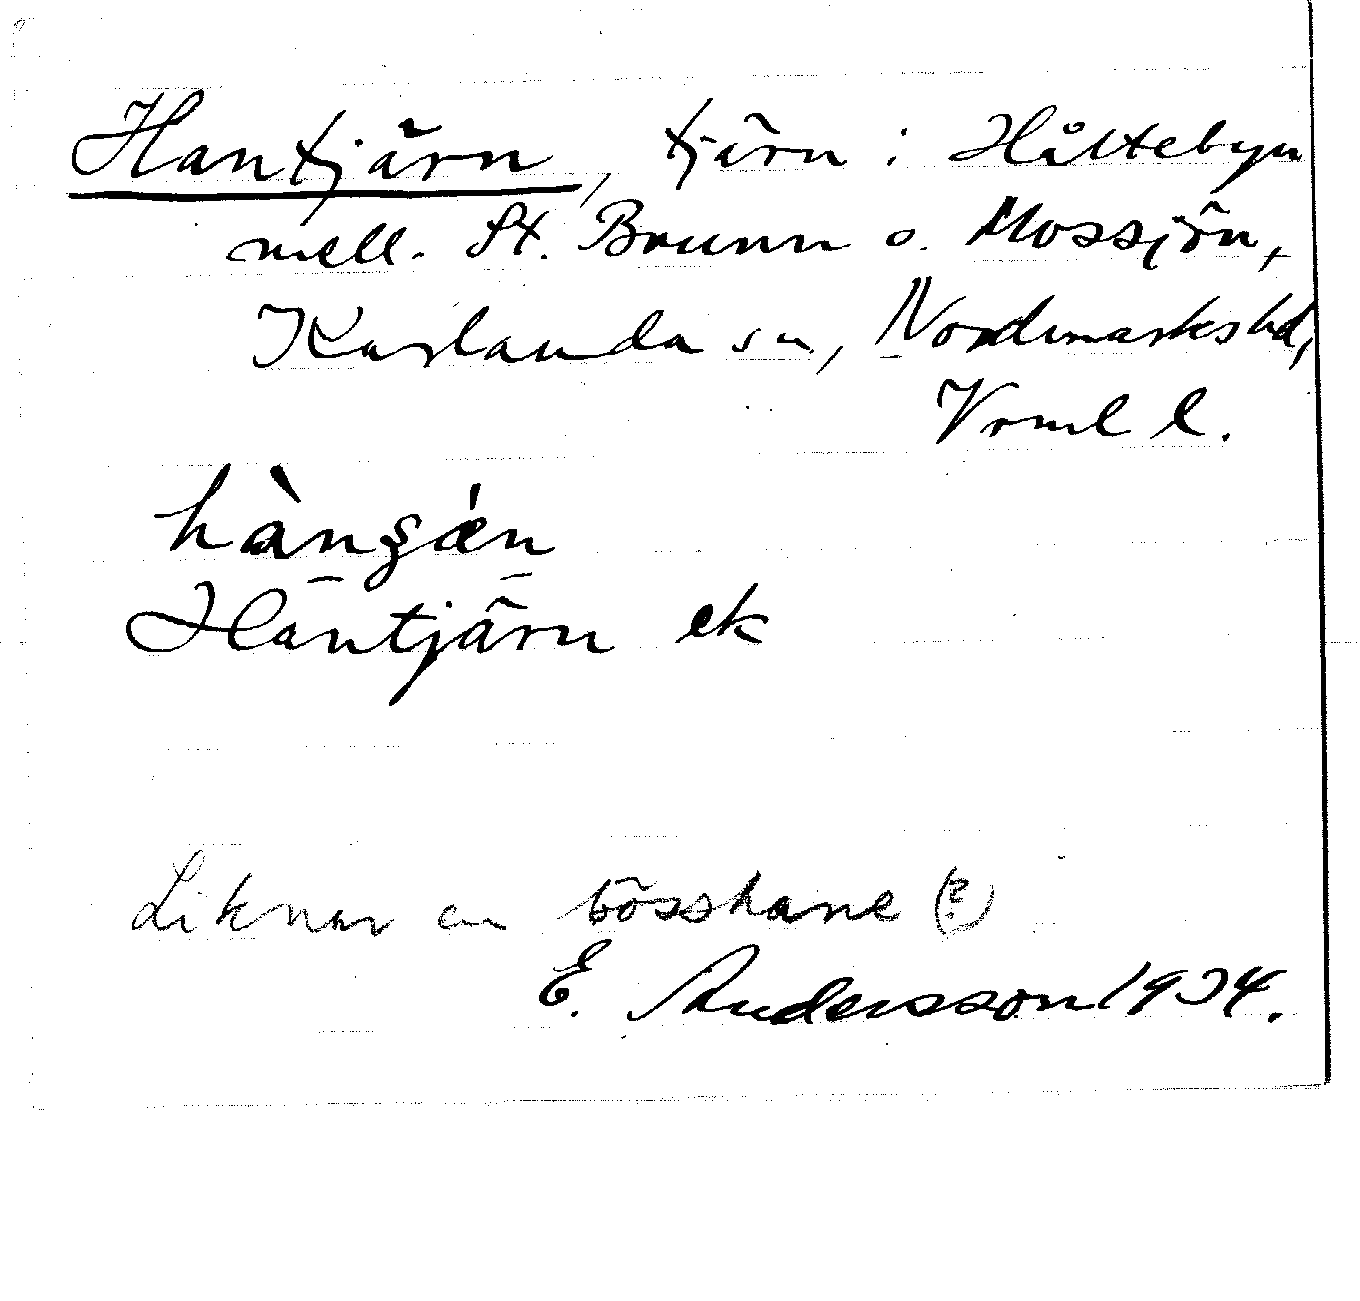 Hantjärn, tjärn i Håltebyn
mell. St. Brunn o. Mossjön,
Karlanda sn, Nordmarks hd,
Vrml l.
Hantjärn ek
Liknar en bösshane (?)
E. Andersson 1934.